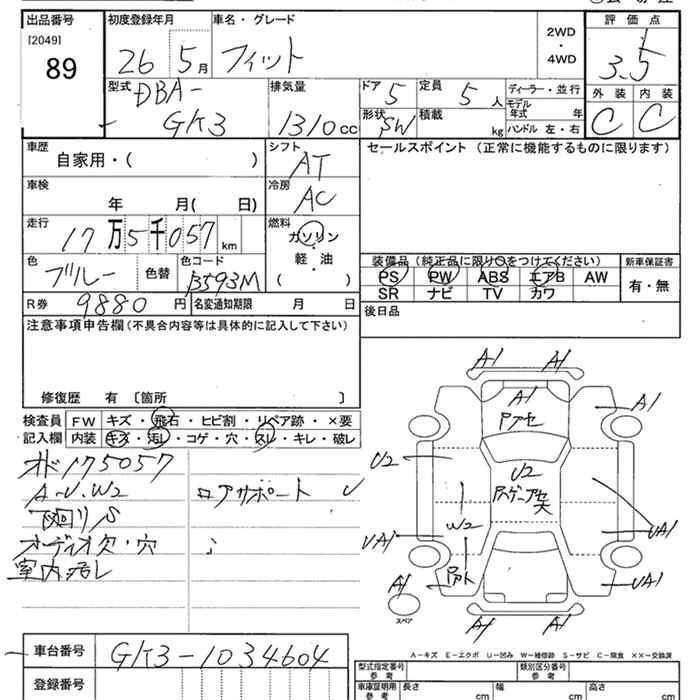 出品番号 初度登録年月 車名・グレード 2WD ・ 4WD 評価点
[2049]
89 26 5月 フィット 3.5
型式 DBA- GK3 排気量 1310cc ドア 5 定員 5人 ディーラー・並行 外装 内装
形状 SW 積載 kg モデル年式 年 C C
ハンドル 左・右
車歴 自家用・( ) シフト AT セールスポイント (正常に機能するものに限ります)
車検 年 月( 日) 冷房 AC
走行 17万5千057km 燃料 ガソリン
軽・油
( )
色 ブルー 色替 色コード B593M
装備品(純正品に限り○をつけてください) 新車保証書
PS PW ABS エアB AW 有・無
SR ナビ TV カワ
R券 9880円 名変通知期限 月 日 後日品
注意事項申告欄(不具合内容等は具体的に記入して下さい)
修復歴 有 〔箇所 〕
検査員 FW キズ・飛石・ヒビ割・リペア跡・×要
記入欄 内装 キズ・汚レ・コゲ・穴・スレ・キレ・破レ
オド175057
A-U.W2 ロアサポート U
下回りS
オーディオ欠・穴
室内汚レ
A1 A1
A1 A1
Pアセ
U2 U2
W2
UA1 UA1
UA1
A1
スペア
A1 A1
A-キズ E-エクボ U-凹み W-補修跡 S-サビ C-腐食 XX-交換済
車台番号 GK3-1034604
登録番号
型式指定番号 参考 類別区分番号 参考
車庫証明用 参考 長さ cm 幅 cm 高さ cm